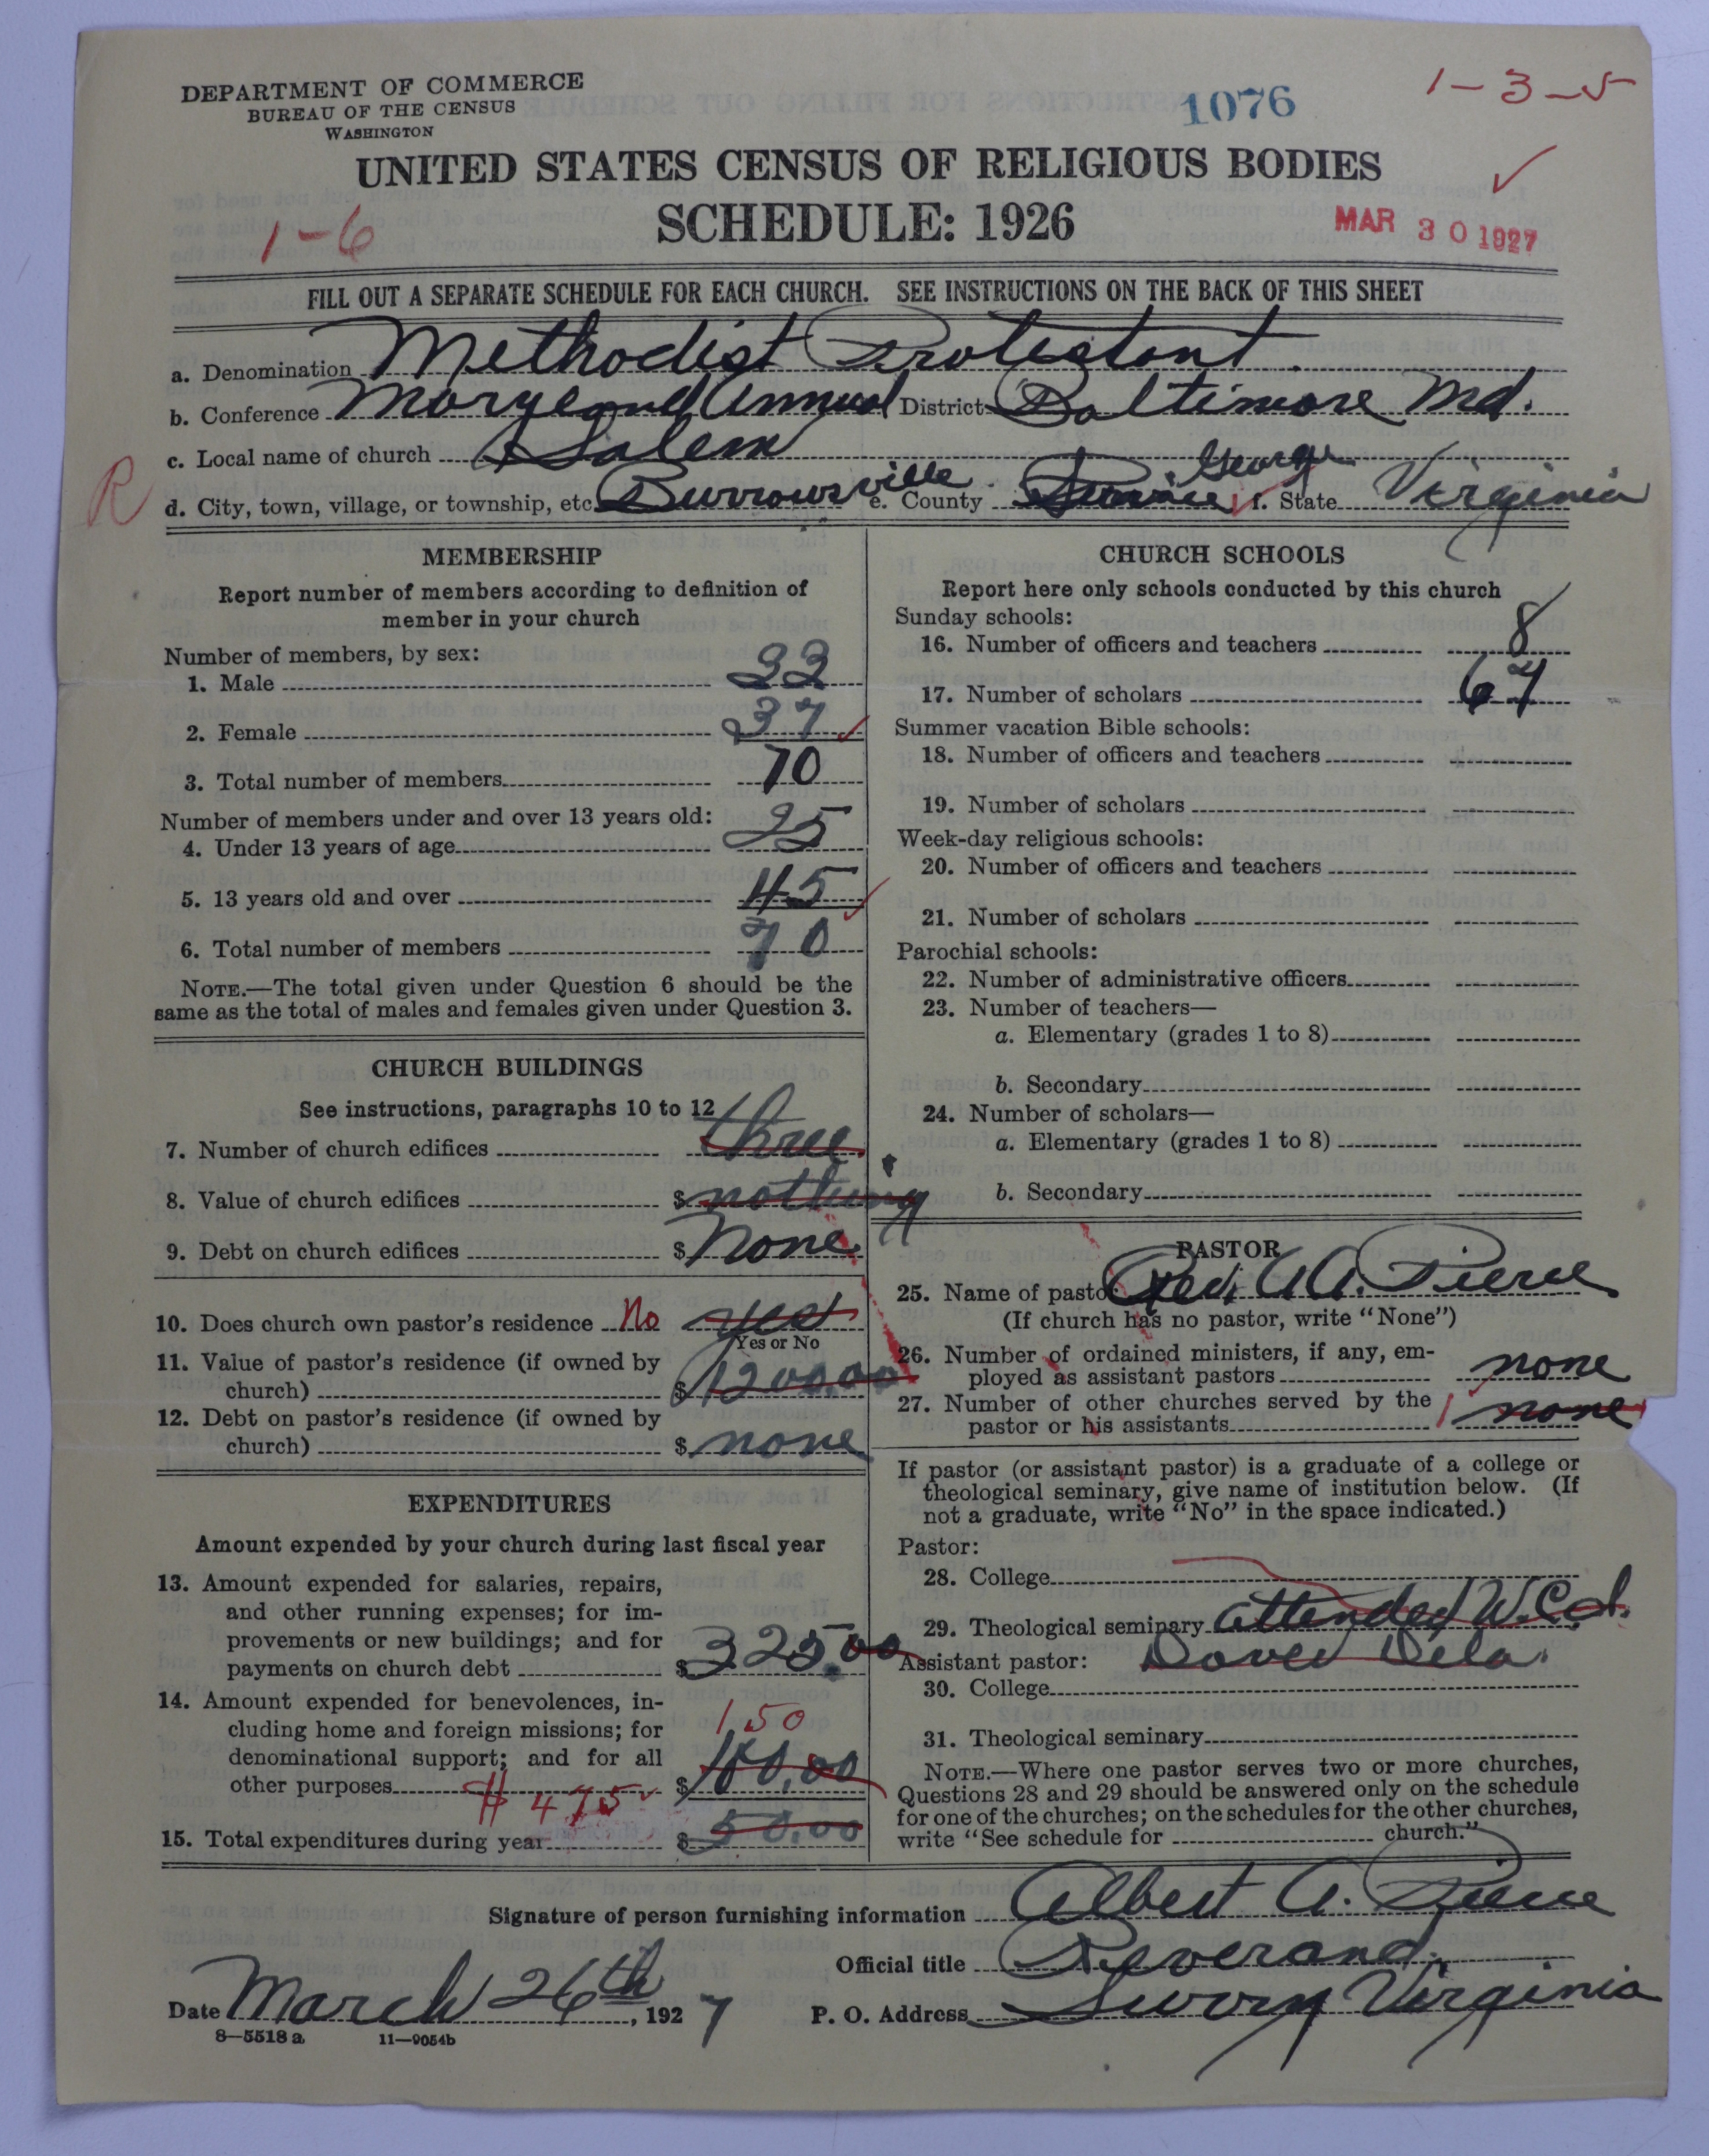 DEPARTMENT OF COMMERCE
BUREAU OF THE CENSUS
WASHINGTON
1076
1-3-5
UNITED STATES CENSUS OF RELIGIOUS BODIES
SCHEDULE: 1926
1-6
MAR 30 1927
FILL OUT A SEPARATE SCHEDULE FOR EACH CHURCH. SEE INSTRUCTIONS ON THE BACK OF THIS SHEET
a. Denomination Methodist Protestant
b. Conference Maryland Annual District Baltimore Md.
c. Local name of church Salem
R
d. City, town, village, or township, etc. Burrowsville e. County Prince George f. State Virginia
MEMBERSHIP
Report number of members according to definition of
member in your church
Number of members, by sex:
1. Male 33
2. Female 37
3. Total number of members 70
Number of members under and over 13 years old:
4. Under 13 years of age 25
5. 13 years old and over 45
6. Total number of members 70
NOTE.—The total given under Question 6 should be the
same as the total of males and females given under Question 3.
CHURCH BUILDINGS
See instructions, paragraphs 10 to 12
7. Number of church edifices three
8. Value of church edifices $ nothing
9. Debt on church edifices $ None
10. Does church own pastor's residence No yes
Yes or No
11. Value of pastor's residence (if owned by
church) $ 1200.00
12. Debt on pastor's residence (if owned by
church) $ none
EXPENDITURES
Amount expended by your church during last fiscal year
13. Amount expended for salaries, repairs,
and other running expenses; for im-
provements or new buildings; and for
payments on church debt $ 325.00
14. Amount expended for benevolences, in-
cluding home and foreign missions; for 150
denominational support; and for all
other purposes $ 100.00
475
15. Total expenditures during year $ 50.00
CHURCH SCHOOLS
Report here only schools conducted by this church
Sunday schools:
16. Number of officers and teachers 8
17. Number of scholars 67
Summer vacation Bible schools:
18. Number of officers and teachers
19. Number of scholars
Week-day religious schools:
20. Number of officers and teachers
21. Number of scholars
Parochial schools:
22. Number of administrative officers
23. Number of teachers—
a. Elementary (grades 1 to 8)
b. Secondary
24. Number of scholars—
a. Elementary (grades 1 to 8)
b. Secondary
PASTOR
25. Name of pastor Rev. A A. Pierce
(If church has no pastor, write "None")
26. Number of ordained ministers, if any, em-
ployed as assistant pastors none
27. Number of other churches served by the
pastor or his assistants 1 none
If pastor (or assistant pastor) is a graduate of a college or
theological seminary, give name of institution below. (If
not a graduate, write "No" in the space indicated.)
Pastor:
28. College
29. Theological seminary attended W. Col.
Dover Dela.
Assistant pastor:
30. College
31. Theological seminary
NOTE.—Where one pastor serves two or more churches,
Questions 28 and 29 should be answered only on the schedule
for one of the churches; on the schedules for the other churches,
write "See schedule for church."
Signature of person furnishing information Albert A. Pierce
Official title Reverand.
Date March 26th, 1927 P. O. Address Surry Virginia
8—5518 a 11—9054b